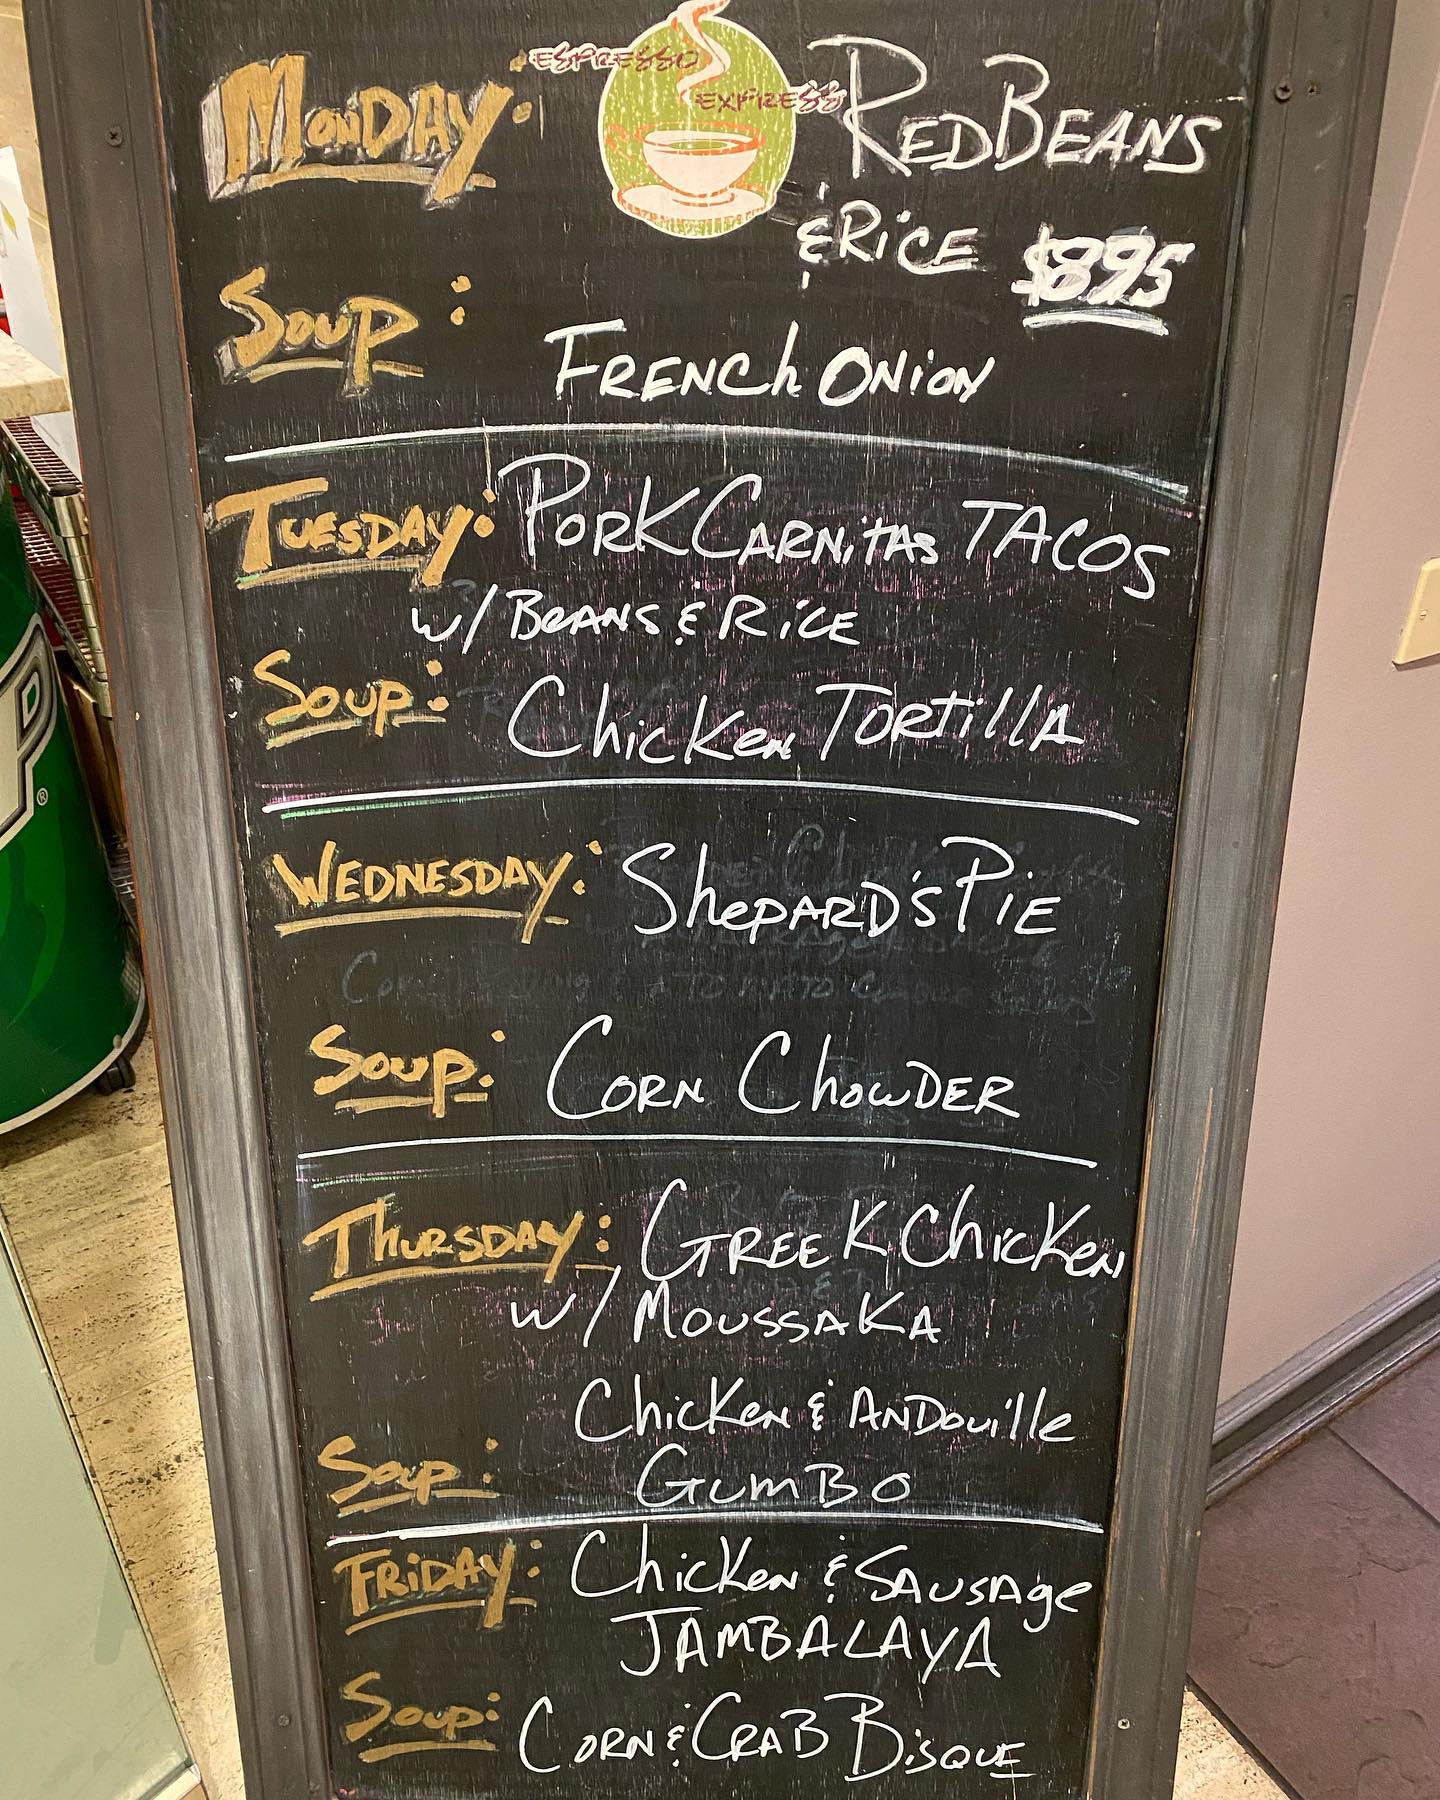 MONDAY:
ESPRESSO
EXPRESS
RED BEANS
& RICE $8.95
SOUP:
FRENCh ONiON
TUESDAY: PORK CARNitAS TACOS
w/ BEANS & RiCE
SOUP: ChicKen TORTillA
WEDNESDAY: ShePARD'S PiE
SOUP: CORN ChowDER
ThURSDAY: GREEK ChicKen
w/ MOUSSAKA
ChicKen & ANDouille
SOUP: GUMBO
FRiDAY: ChicKen & SAUSAge
JAMBALAYA
SOUP: CORN & CRAB BiSQUE
®